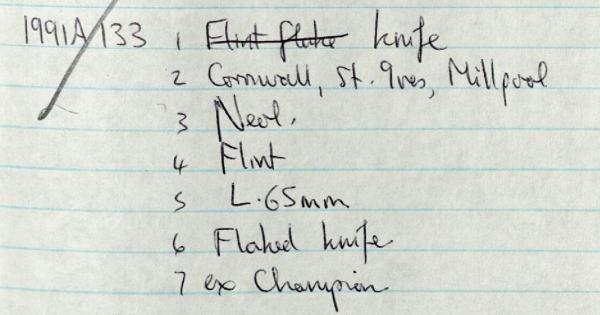 1991A/133 1 Flint flake knife
2 Cornwall, St. Ives, Millpool
3 Neol.
4 Flint
5 L.65mm
6 Flaked knife
7 ex Champion